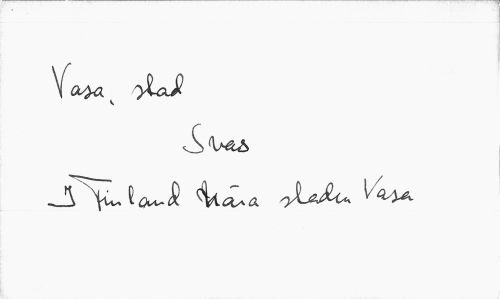 Vasa, stad
Svas
I Finland nära staden Vasa